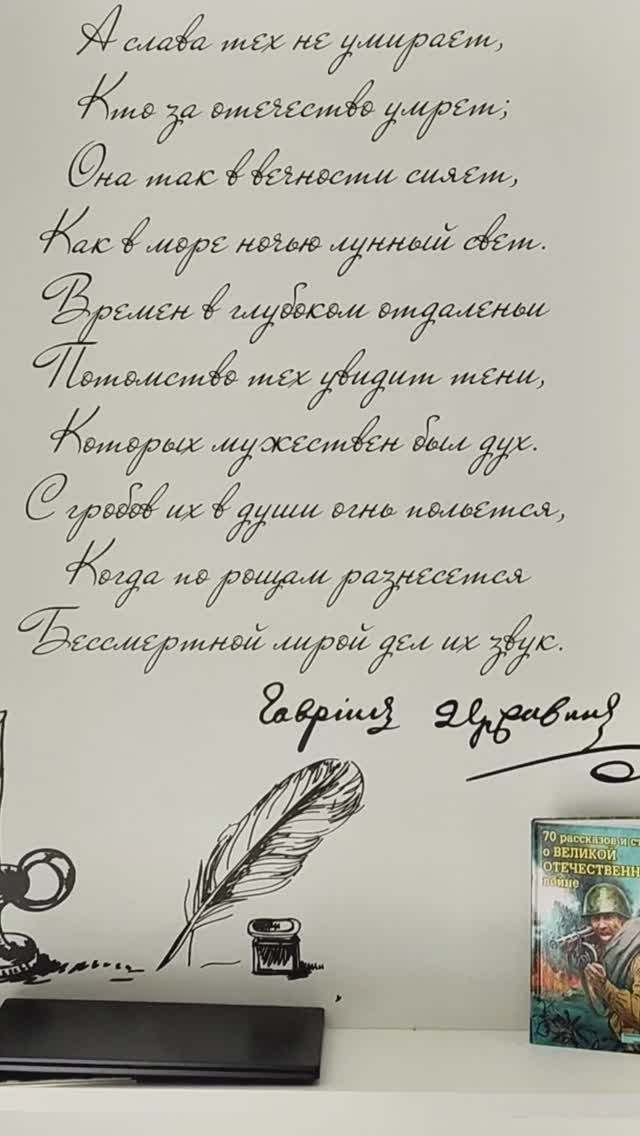 А слава тех не умирает,
Кто за отечество умрет;
Она так в вечности сияет,
Как в море ночью лунный свет.
Времен в глубоком отдаленьи
Потомство тех увидит тени,
Которых мужествен был дух.
С гробов их в души огнь польется,
Когда по рощам разнесется
Бессмертной лирой дел их звук.
Гавріилъ Державинъ
70 рассказов и
о ВЕЛИКОЙ
ОТЕЧЕСТВЕНН
войне